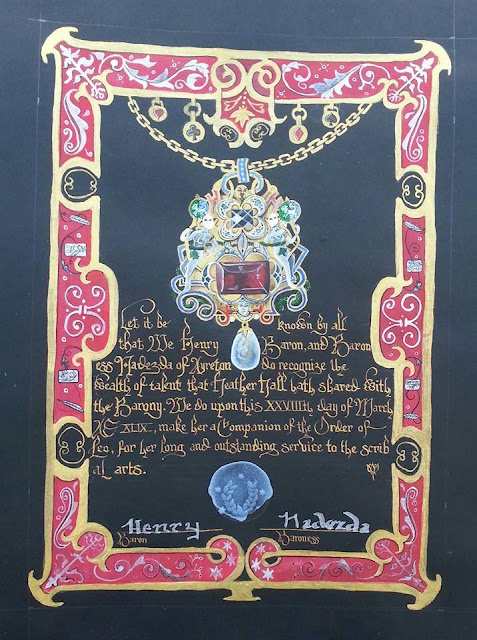 Let it be known by all
that We Henry Baron, and Baron
ess Nadezda of Ayreton do recognize the
wealth of talent that Heather Hall hath shared with
the Barony. We do upon this XXVIIIth day of March
AS XLIX, make her a Companion of the Order of
Leo, for her long and outstanding service to the scrib
al arts.
Henry Nadezda
Baron Baroness